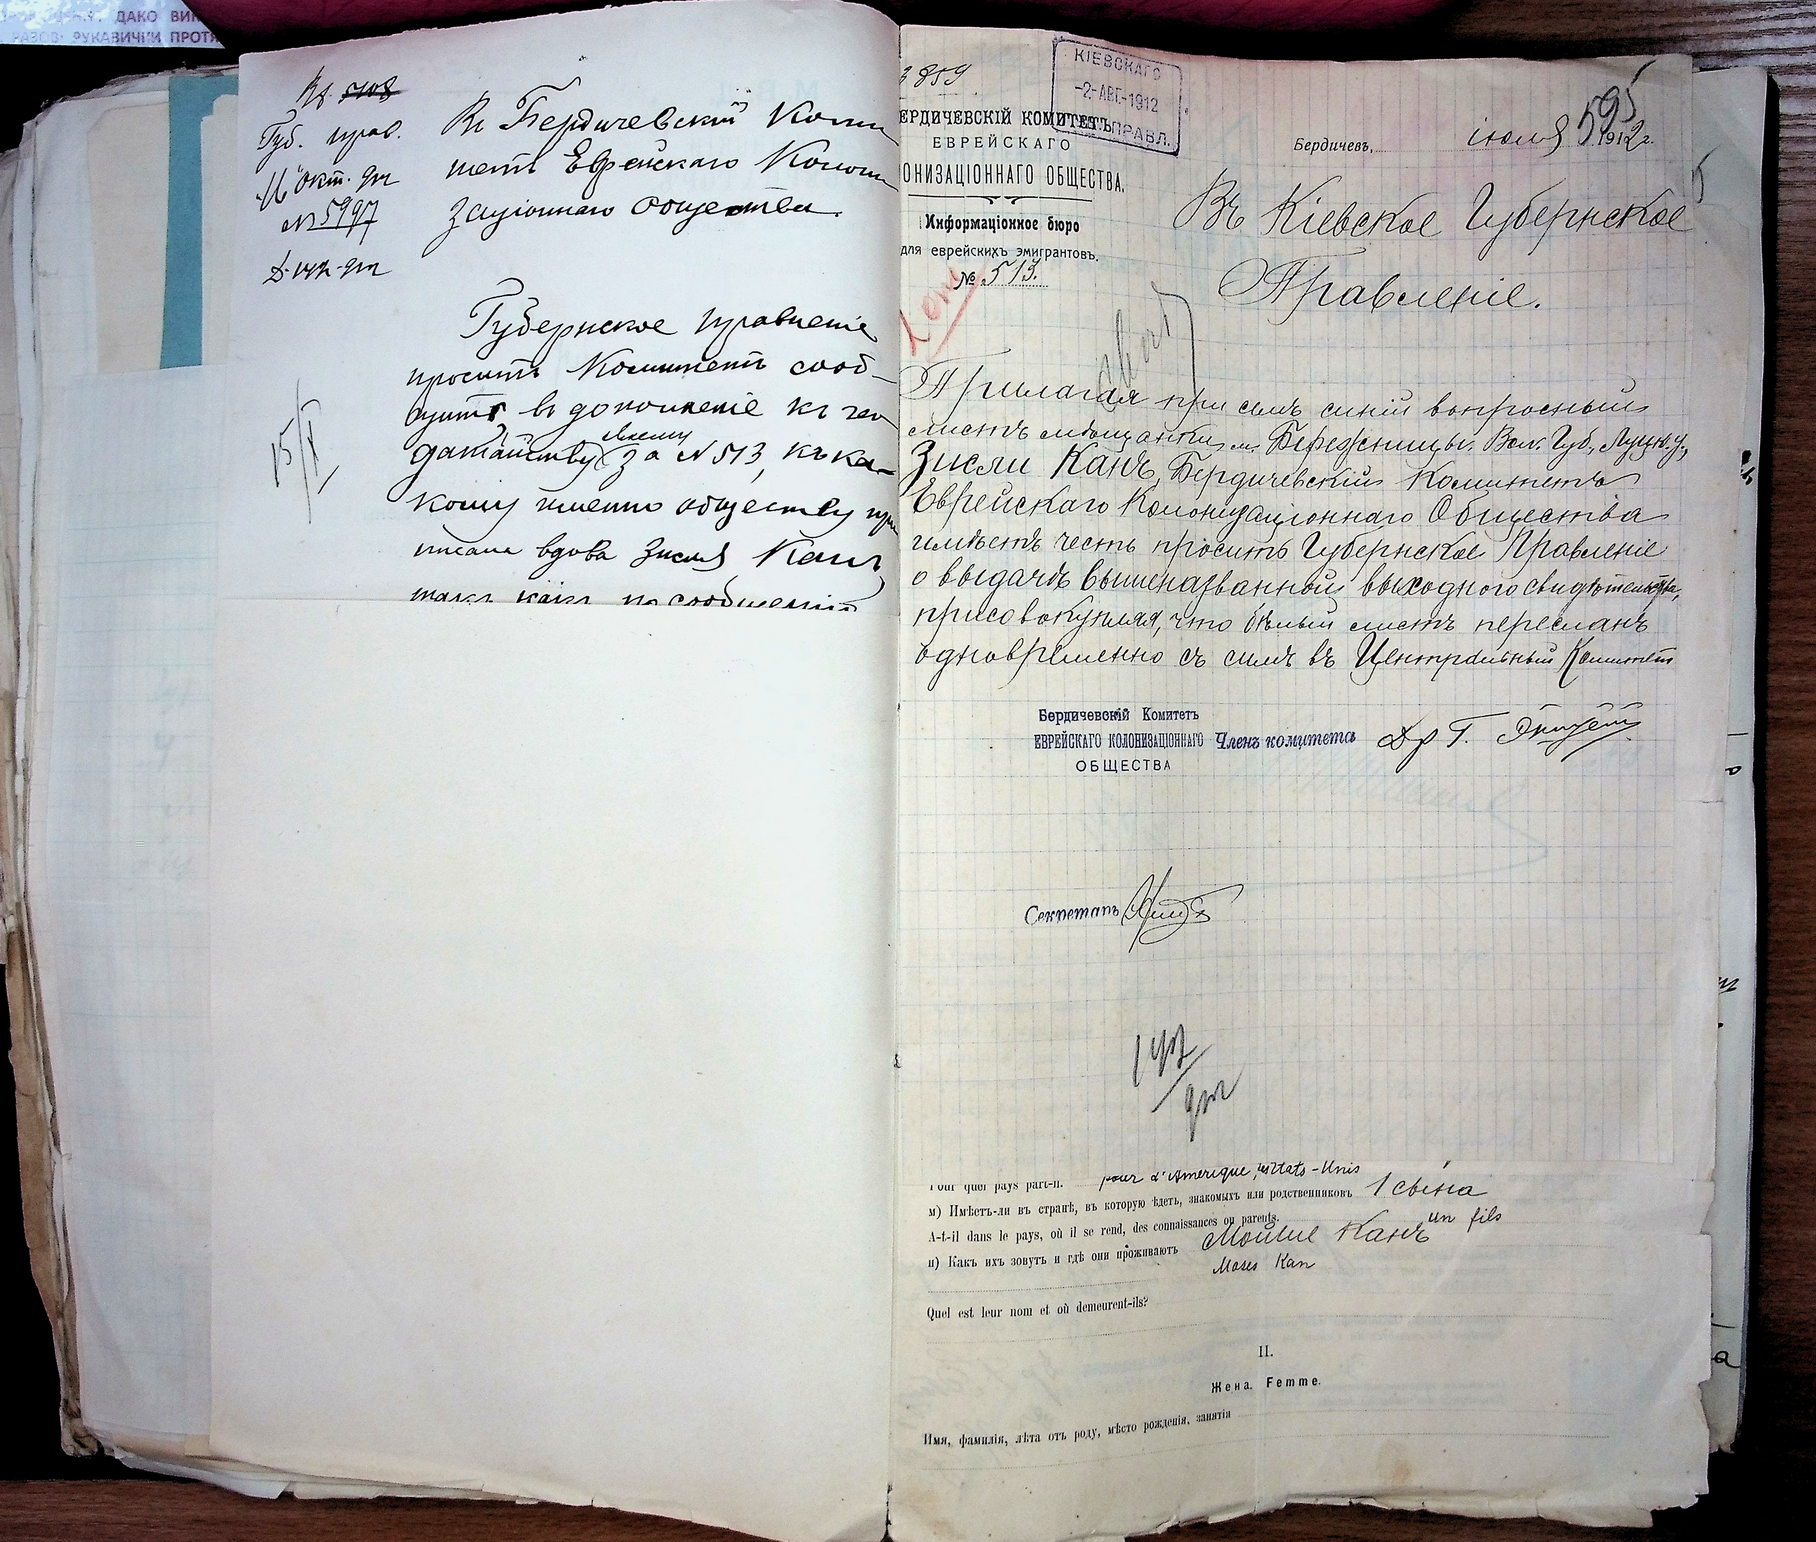 ДАКО ВИ
РАЗОВІ РУКАВИЧКИ ПРОТ
Губ. прав.
окт.
№ 5997
Въ Бердичевскій Коми
тетъ Еврейскаго Колони
заціоннаго общества.
Губернское правленіе
проситъ Комитетъ сооб-
щить въ дополненіе къ хо
датайству за № 513, къ ка-
кому именно обществу при
писана вдова Зисля Канъ,
такъ какъ по сообщенію
15/X
3859
КІЕВСКАГО
-2-АВГ.-1912
ГУБ. ПРАВЛ.
595
ЕРДИЧЕВСКІЙ КОМИТЕТЪ
ЕВРЕЙСКАГО
ОНИЗАЦІОННАГО ОБЩЕСТВА.
Информаціонное бюро
для еврейскихъ эмигрантовъ.
№ 513.
Бердичевъ, іюля 1912 г.
Въ Кіевское Губернское
Правленіе.
Прилагая при семъ синій вопросный
листъ мѣщанки м. Бережницы, Вол. Губ., Луцк. у.,
Зисли Канъ, Бердичевскій Комитетъ
Еврейскаго Колонизаціоннаго Общества
имѣетъ честь просить Губернское Правленіе
о выдачѣ вышеназванной выходного свидѣтельства,
присовокупляя, что бѣлый листъ пересланъ
одновременно съ симъ въ Центральный Комитетъ
Бердичевскій Комитетъ
ЕВРЕЙСКАГО КОЛОНИЗАЦІОННАГО
ОБЩЕСТВА
Членъ комитета Др Г.
Секретарь
Pour quel pays part-il. pour d'Amerique, Etats-Unis
м) Имѣетъ-ли въ странѣ, въ которую ѣдетъ, знакомыхъ или родственниковъ 1 сына
A-t-il dans le pays, où il se rend, des connaissances ou parents. un fils
н) Какъ ихъ зовутъ и гдѣ они проживаютъ Мойше Канъ
Moses Kan
Quel est leur nom et où demeurent-ils?
II.
Жена. Femme.
Имя, фамилія, лѣта отъ роду, мѣсто рожденія, занятія